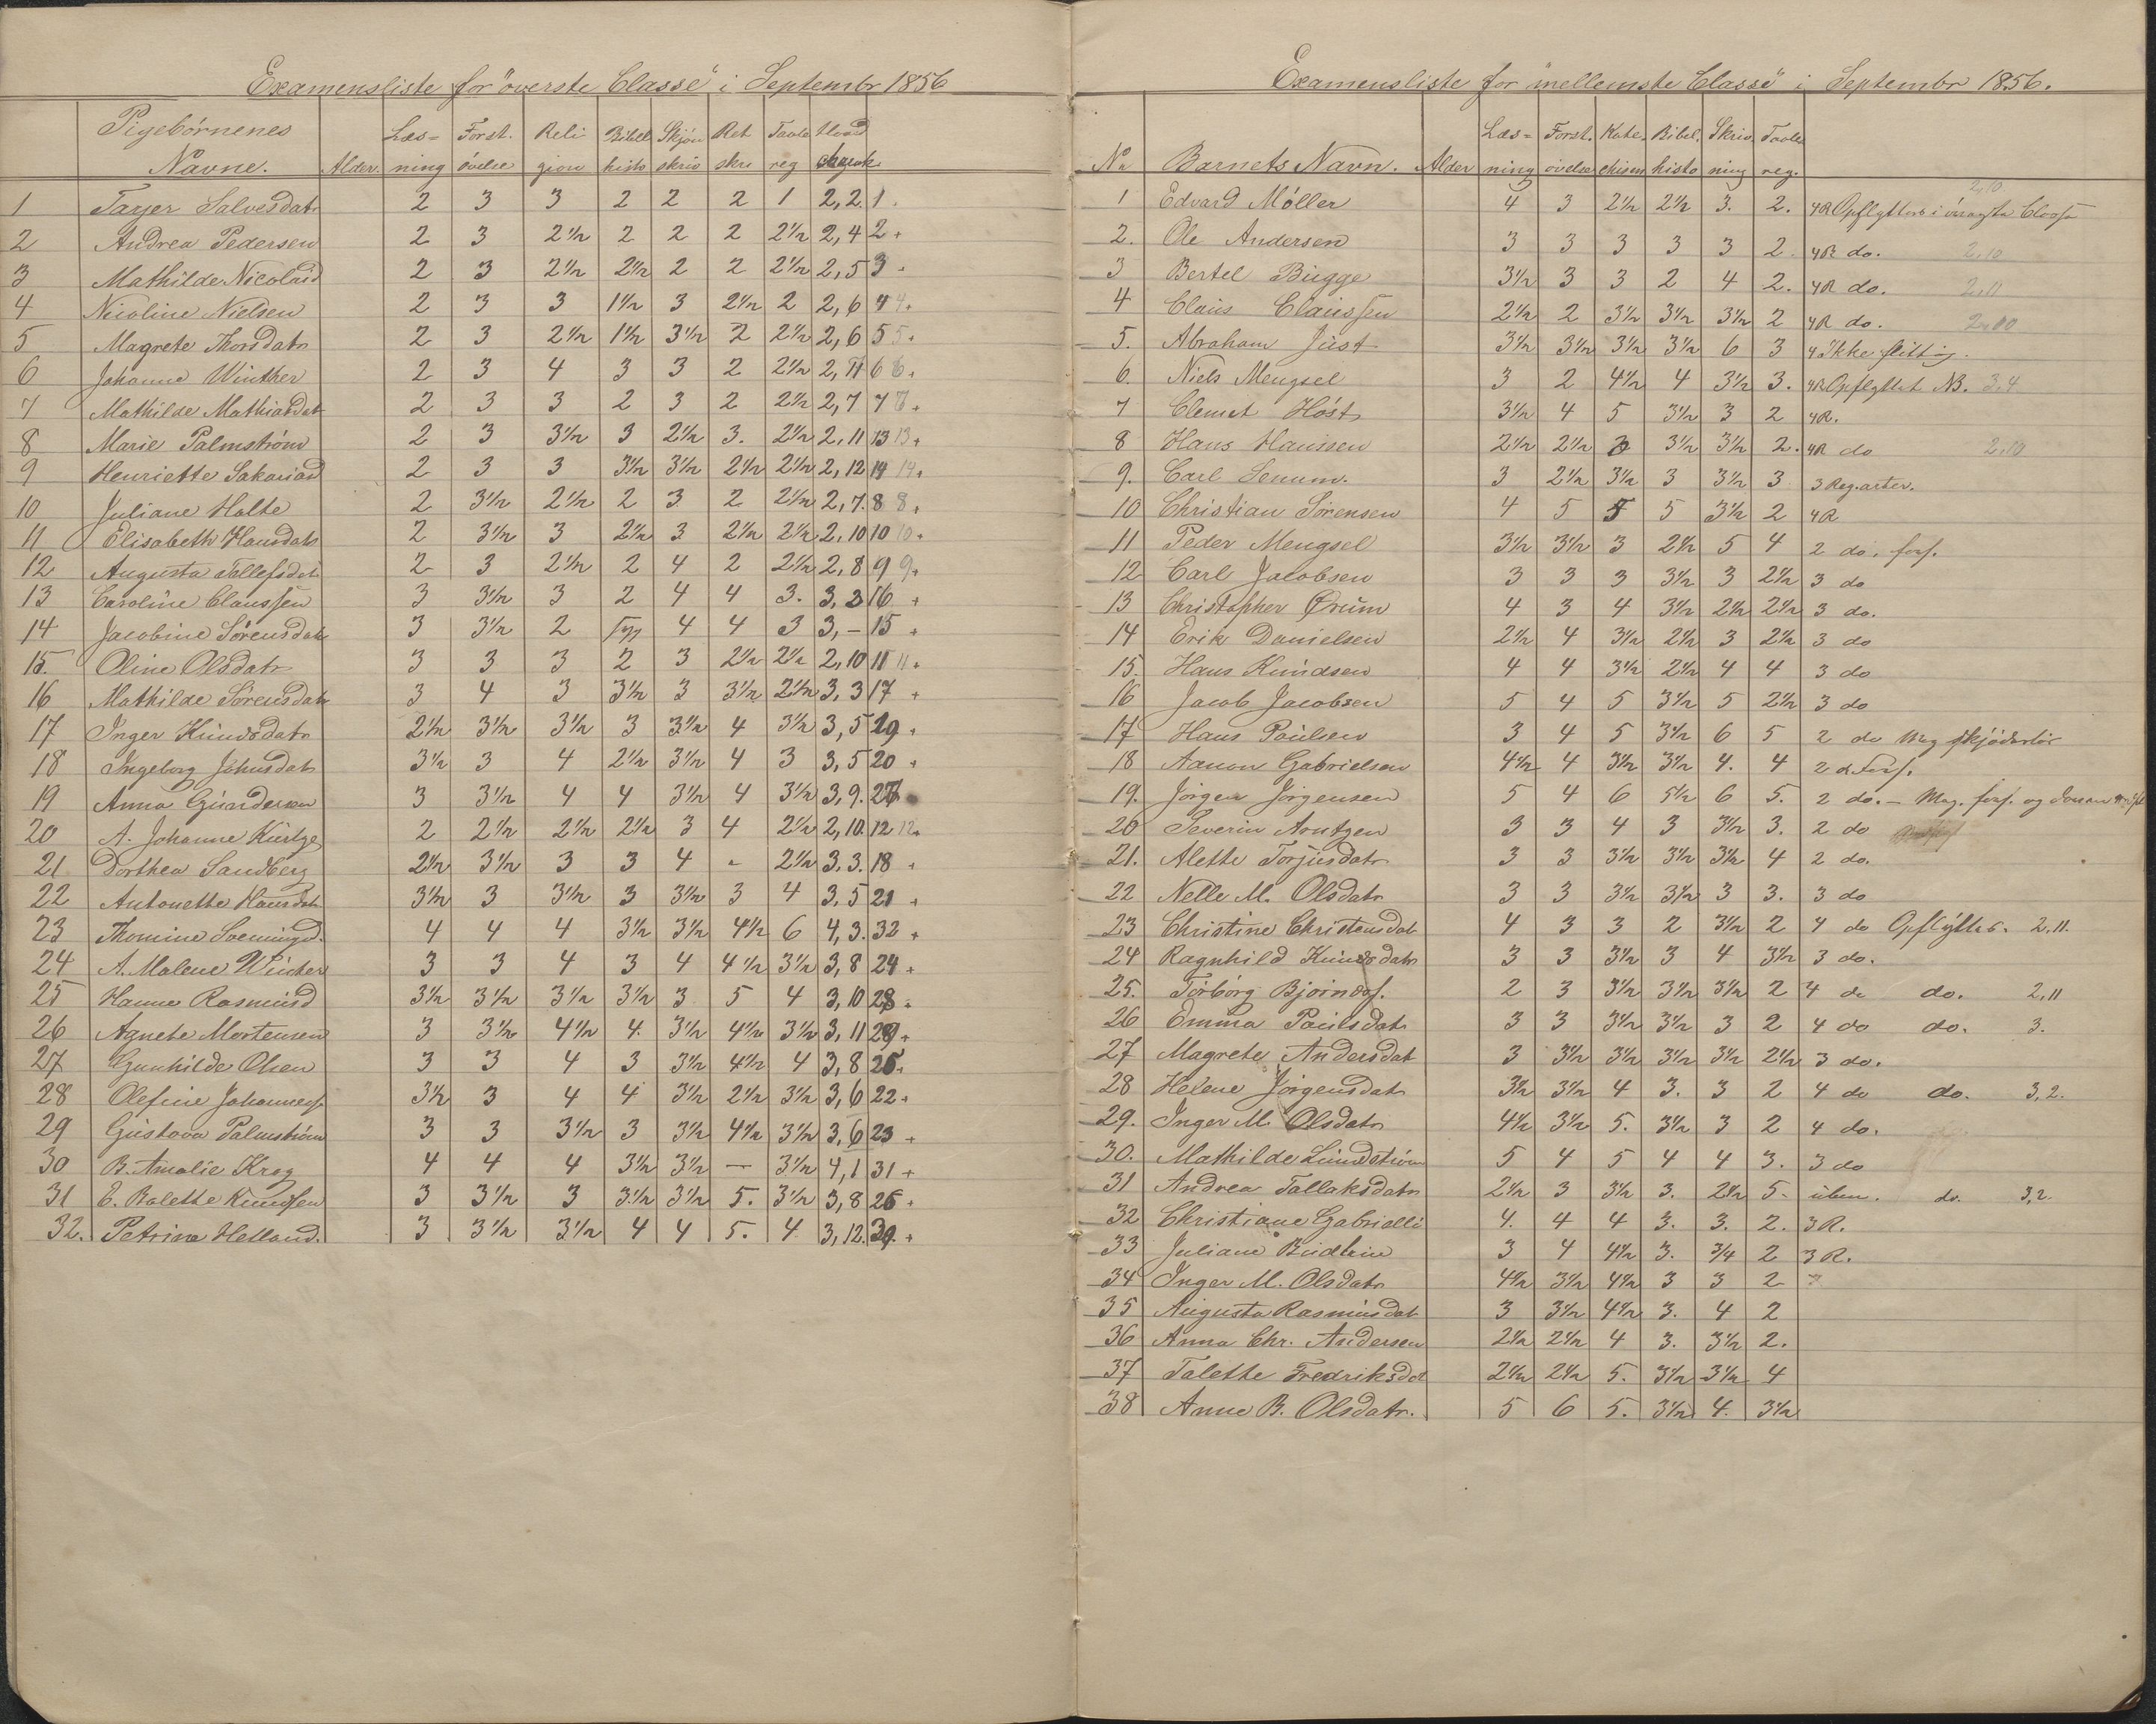 Examensliste for "överste Classe" i Septembr 1856
Pigebörnenes Navne. Alder. Læs=ning Forst.övelse Religion Bibelhisto Skjönskriv Retskr Tavlereg Hoved charak
1 Tarjer Salvesdatr 2 3 3 2 2 2 1 2,2 1.
2 Andrea Pedersen 2 3 2½ 2 2 2 2½ 2,4 2+
3 Mathilde Nicolaisd 2 3 2½ 2½ 2 2 2½ 2,5 3.
4 Nicoline Nielsen 2 3 3 1½ 3 2½ 2 2,6 4 4.
5 Magrete Thorsdatr 2 3 2½ 1½ 3½ 2 2½ 2,6 5 5.
6 Johanne Winther 2 3 4 3 3 2 2½ 2,7 6 6.
7 Mathilde Mathiasdat 2 3 3 2 3 2 2½ 2,7 7 7+
8 Marie Palmström 2 3 3½ 3 2½ 3. 2½ 2,11 13 13+
9 Henriette Sakariasd 2 3 3 3½ 3½ 2½ 2½ 2,12 14 14+
10 Juliane Holte 2 3½ 2½ 2 3 2 2½ 2,7. 8 8+
11 Elisabeth Hansdatr 2 3½ 3 2½ 3 2½ 2½ 2,10 10 10+
12 Augusta Tallefsdat 2 3 2½ 2 4 2 2½ 2,8 9 9+
13 Caroline Claussen 3 3½ 3 2 4 4 3. 3,2 16 +
14 Jacobine Sörensdatr 3 3½ 2 4 4 3 3,– 15 +
15. Oline Olsdatr 3 3 3 2 3 2½ 2½ 2,10 11 11+
16 Mathilde Sörensdatr 3 4 3 3½ 3 3½ 2½ 3,3 17 +
17 Inger Knudsdatr 2½ 3½ 3½ 3 3½ 4 3½ 3,5 19 +
18 Ingeborg Johnsdatr 3½ 3 4 2½ 3½ 4 3 3,5 20 +
19 Anna Gundersen 3 3½ 4 4 3½ 4 3½ 3,9. 27
20 A. Johanne Kurtze 2 2½ 2½ 2½ 3 4 2½ 2,10. 12 12+
21 Dorthea Sandberg 2½ 3½ 3 3 4 - 2½ 3,3. 18 +
22 Antonette Hansdatr 3½ 3 3½ 3 3½ 3 4 3,5 21 +
23 Thomine Soeningsd. 4 4 4 3½ 3½ 4½ 6 4,3. 32 +
24 A. Malene Wincher 3 3 4 3 4 4½ 3½ 3,8 24 +
25 Hanne Rasmusd 3½ 3½ 3½ 3½ 3 5 4 3,10 28 +
26 Agnete Mortensen 3 3½ 4½ 4 3½ 4½ 3½ 3,11 29 +
27 Gunhilde Olsen 3 3 4 3 3½ 4½ 4 3,8 25.
28 Olefine Johannesd. 3½ 3 4 4 3½ 2½ 3½ 3,6 22 +
29 Gustava Palmström 3 3 3½ 3 3½ 4½ 3½ 3,6 23 +
30 B. Amalie Krog 4 4 4 3½ 3½ — 3½ 4,1 31 +
31 E. Ralette Knudsen 3 3½ 3 3½ 3½ 5. 3½ 3,8 26 +
32. Petrine Helland. 3 3½ 3½ 4 4 5. 4 3,12. 30. +
Examensliste for "mellemste Classe" i Septembr 1856.
No Barnets Navn. Alder Læs=ning Forst.övelse Katechism Bibel.histo Skrivning Tavlereg.
1 Edvard Möller 4 3 2½ 2½ 3. 2. 4R Opflyttes i överste Classe 2,10
2. Ole Andersen 3 3 3 3 3 2 4R do. 2,10
3 Bertel Bugge 3½ 3 3 2 4 2. 4R do. 2,11
4 Claus Claussen 2½ 2 3½ 3½ 3½ 2 4R do. 2,10
5. Abraham Just 3½ 3½ 3½ 3½ 6 3 4 Ikke flittig.
6. Niels Mengsel 3 2 4½ 4 3½ 3. 4R Opflyttet NB. 3,4
7 Clemet Höst 3½ 4 5 3½ 3 2 4R.
8 Hans Hansen 2½ 2½ 3 3½ 3½ 2. 4R do 2,10
9. Carl Senum. 3 2½ 3½ 3 3½ 3 3 Reg.arter.
10 Christian Sörensen 4 5 5 5 3½ 2 4R
11 Peder Mengsel 3½ 3½ 3 2½ 5 4 2 do. fors.
12 Carl Jacobsen 3 3 3 3½ 3 2½ 3 do
13 Christopher Örum 4 3 4 3½ 2½ 2½ 3 do.
14 Erik Danielsen 2½ 4 3½ 2½ 3 2½ 3 do
15. Hans Knudsen 4 4 3½ 2½ 4 4 3 do
16 Jacob Jacobsen 5 4 5 3½ 5 2½ 3 do
17 Hans Paulsen 3 4 5 3½ 6 5 2 do Meg skjödeslös
18 Aanon Gabrielsen 4½ 4 3½ 3½ 4. 4 2 d. fors.
19. Jörgen Jörgensen 5 4 6 5½ 6 5. 2 do. – Meg. fors. og
20 Severin Arntzen 3 3 4 3 3½ 3. 2 do
21. Alette Torjusdatr 3 3 3½ 3½ 3½ 4 2 do.
22 Nelle M. Olsdatr 3 3 3½ 3½ 3 3. 3 do
23 Christine Christensdat 4 3 3 2 3½ 2 4 do Opflyttes. 2,11.
24 Ragnhild Knudsdatr 3 3 3½ 3 4 3½ 3 do.
25. Torborg Bjornds. 2 3 3½ 3½ 3½ 2 4 do do. 2,11
26 Emma Paulsdatr 3 3 3½ 3½ 3 2 4 do do. 3.
27 Magrete Andersdat 3 3½ 3½ 3½ 3½ 2½ 3 do.
28 Helene Jörgensdatr 3½ 3½ 4 3. 3 2 4 do do. 3,2.
29. Inger M. Olsdatr 4½ 3½ 5. 3½ 3 2 4 do.
30. Mathilde Lundström 5 4 5 4 4 3. 3 do
31 Andrea Tallaksdatr 2½ 3 3½ 3. 2½ 5. uben. do. 3,2.
32 Christiane Gabrielli 4. 4 4 3. 3. 2. 3R.
33 Juliane Budtrin 3 4 4½ 3. 3/4 2 3R.
34 Inger M. Olsdatr 4½ 3½ 4½ 3 3 2
35 Augusta Rasmusdat 3 3½ 4½ 3. 4 2
36 Anna Chr. Andersen 2½ 2½ 4 3. 3½ 2.
37 Talette Fredriksdat 2½ 2½ 5. 3½ 3½ 4
38 Anne B. Olsdatr. 5 6 5. 3½ 4. 3½